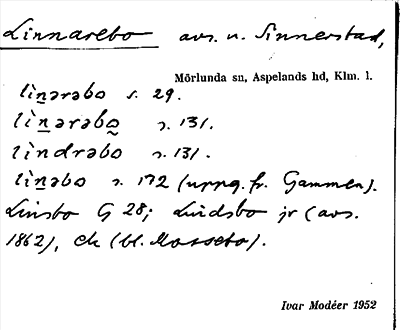 Linnarebo avs. u. Sinnerstad,
Mörlunda sn, Aspelands hd, Klm. l.
lìn̲ərəbo s. 29.
lìn̲ərəbo̰ s. 131.
lìndrəbo s. 131.
lìn̲əbo s. 172 (uppg. fr. Gammen).
Linsbo G 28; Lindsbo jr (avs.
1862), ek (bl. Mosseto).
Ivar Modéer 1952